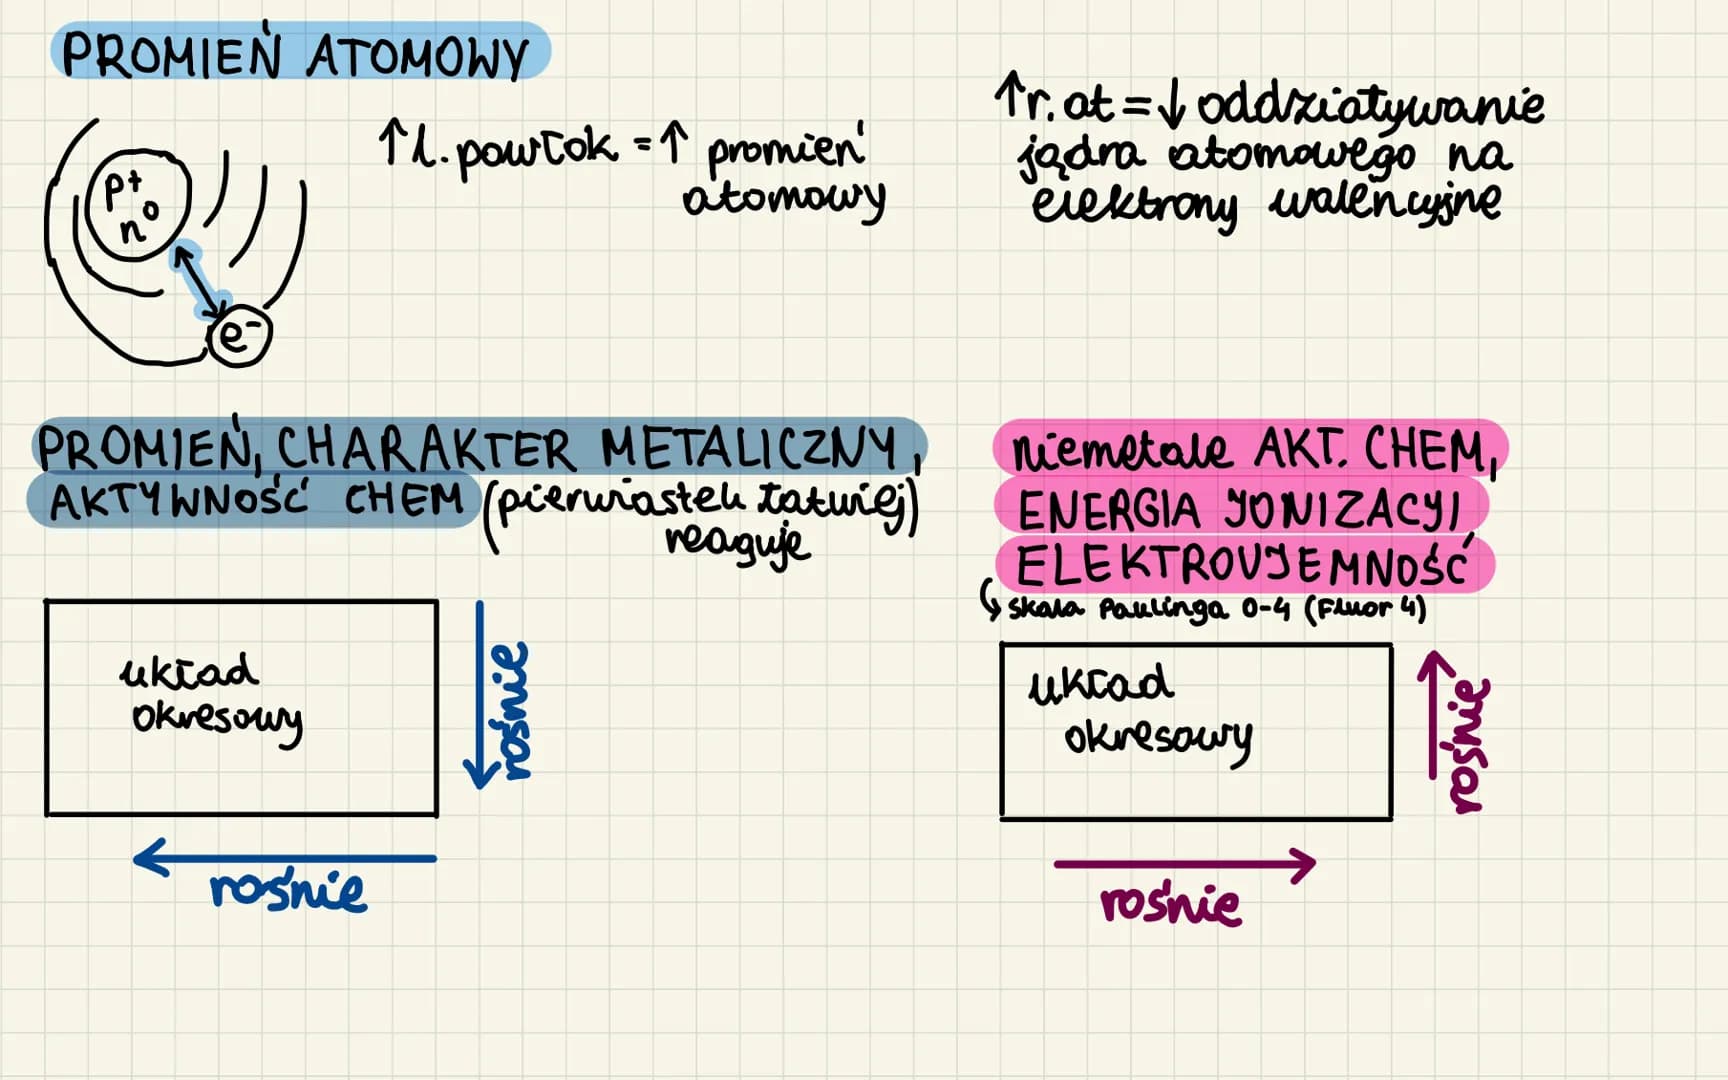 PROMIEŃ ATOMOWY
p+
n0
e-
↑ l. powłok = ↑ promień
atomowy
↑ r. at = ↓ oddziaływanie
jądra atomowego na
elektrony walencyjne
PROMIEŃ, CHARAKTER METALICZNY,
AKTYWNOŚĆ CHEM (pierwiastek łatwiej)
reaguje
układ
okresowy
rośnie
rośnie
niemetale AKT. CHEM,
ENERGIA JONIZACYJI
ELEKTROUJEMNOŚĆ
↳ skala Paulinga 0-4 (Fluor 4)
układ
okresowy
rośnie
rośnie